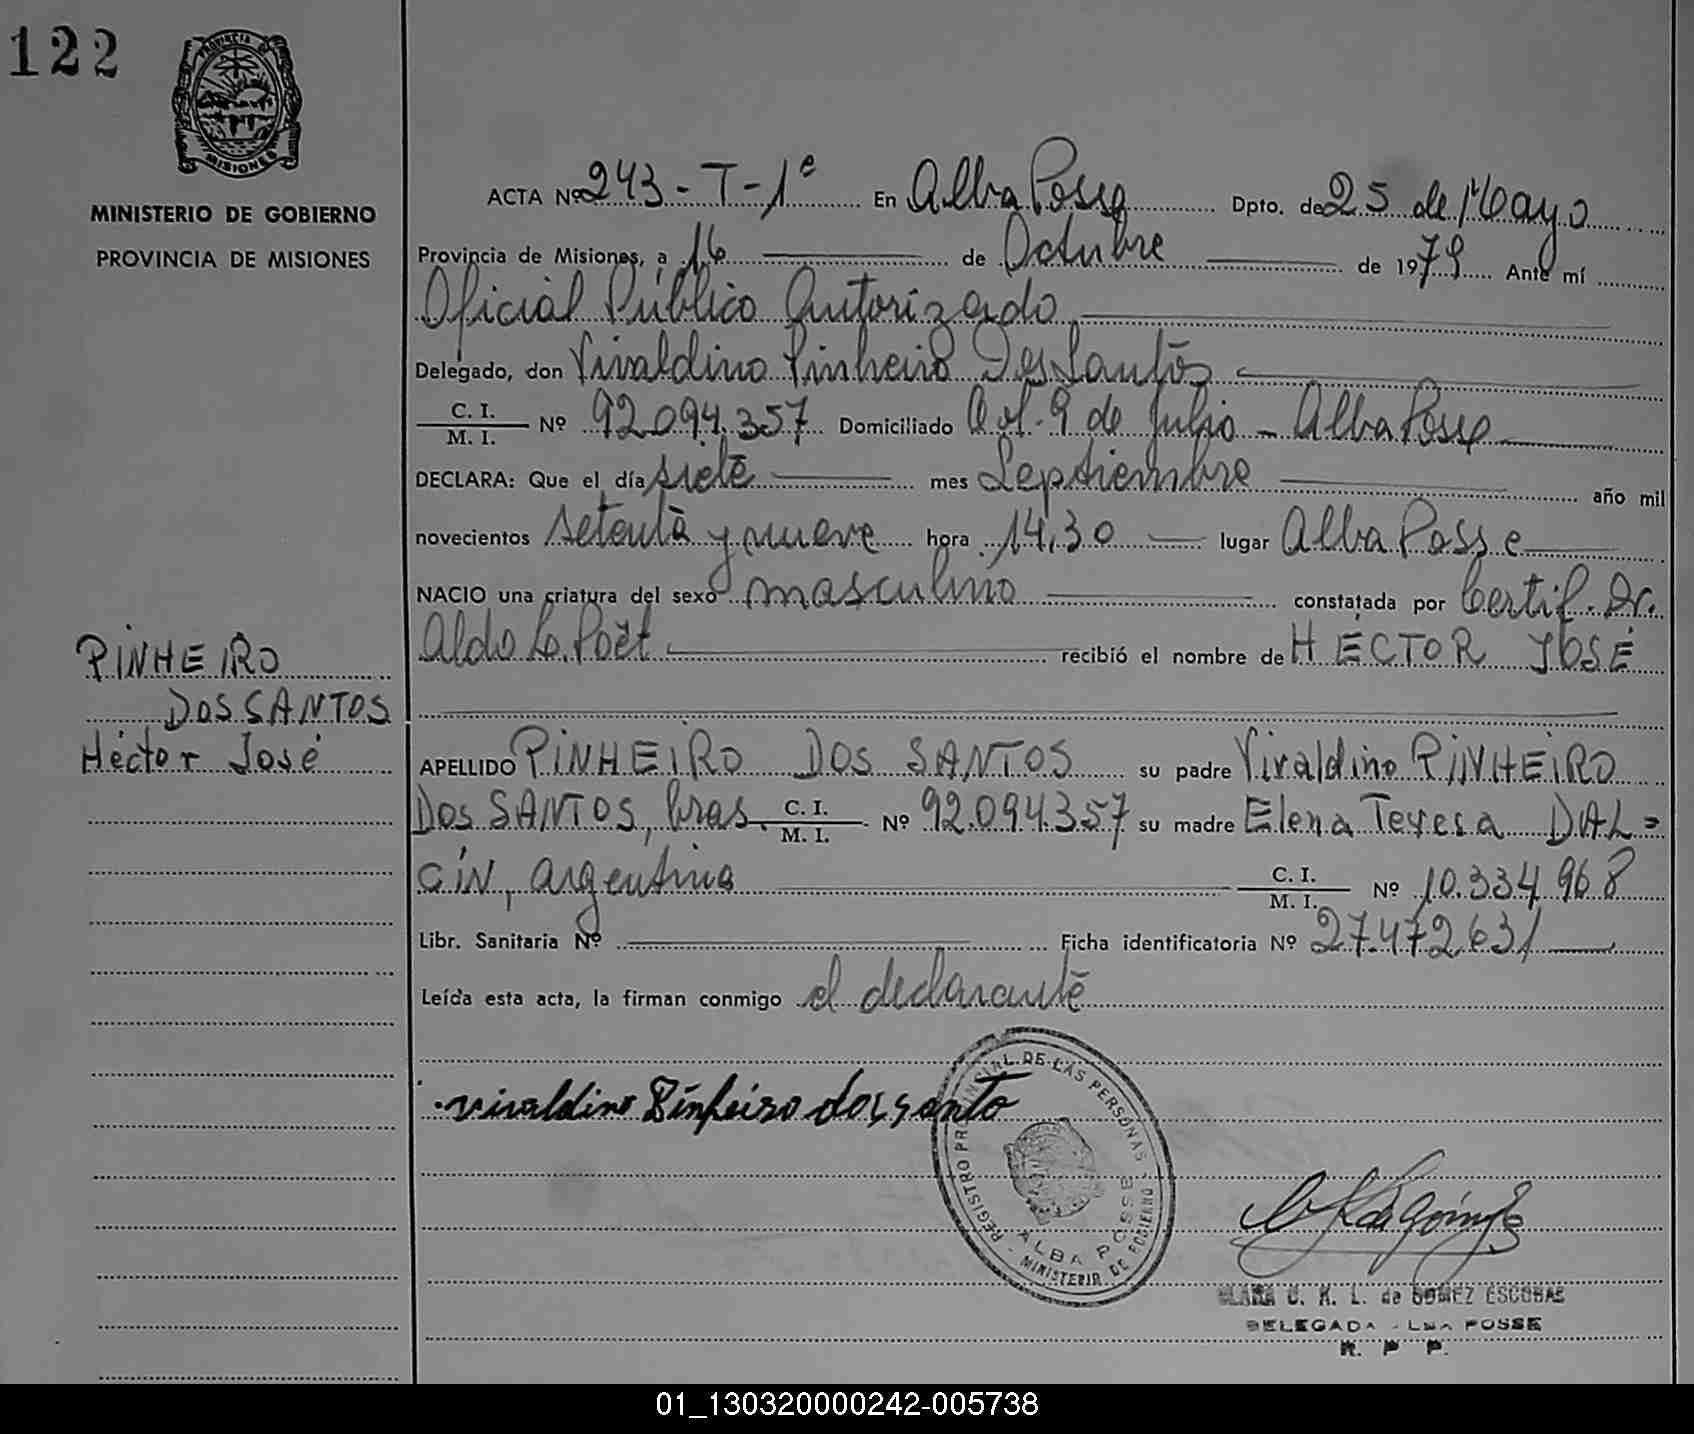 122
PROVINCIA DE
MISIONES
MINISTERIO DE GOBIERNO
PROVINCIA DE MISIONES
PINHEIRO
DOS SANTOS
Héctor José
ACTA Nº 243 - T - 1ª En Alba Posse Dpto. de 25 de Mayo
Provincia de Misiones, a 16 de Octubre de 1979 Ante mí
Oficial Público Autorizado
Delegado, don Vivaldino Pinheiro Dos Santos
C. I. / M. I. Nº 92.094.357 Domiciliado Col. 9 de Julio - Alba Posse
DECLARA: Que el día siete mes Septiembre año mil
novecientos setenta y nueve hora 14,30 lugar Alba Posse
NACIO una criatura del sexo masculino constatada por Certif. Dr.
Aldo L. Poët recibió el nombre de HÉCTOR JOSÉ
APELLIDO PINHEIRO DOS SANTOS su padre Vivaldino PINHEIRO
DOS SANTOS, bras. C. I. / M. I. Nº 92.094.357 su madre Elena Teresa DAL=
CIN, argentina C. I. / M. I. Nº 10.334.968
Libr. Sanitaria Nº Ficha identificatoria Nº 27.472.631
Leída esta acta, la firman conmigo el declarante
vivaldino Pinheiro dos santo
REGISTRO PROVINCIAL DE LAS PERSONAS
ALBA POSSE
MINISTERIO DE GOBIERNO
CLARA U. K. L. de GOMEZ ESCOBAR
DELEGADA ALBA POSSE
R. P. P.
01_130320000242-005738